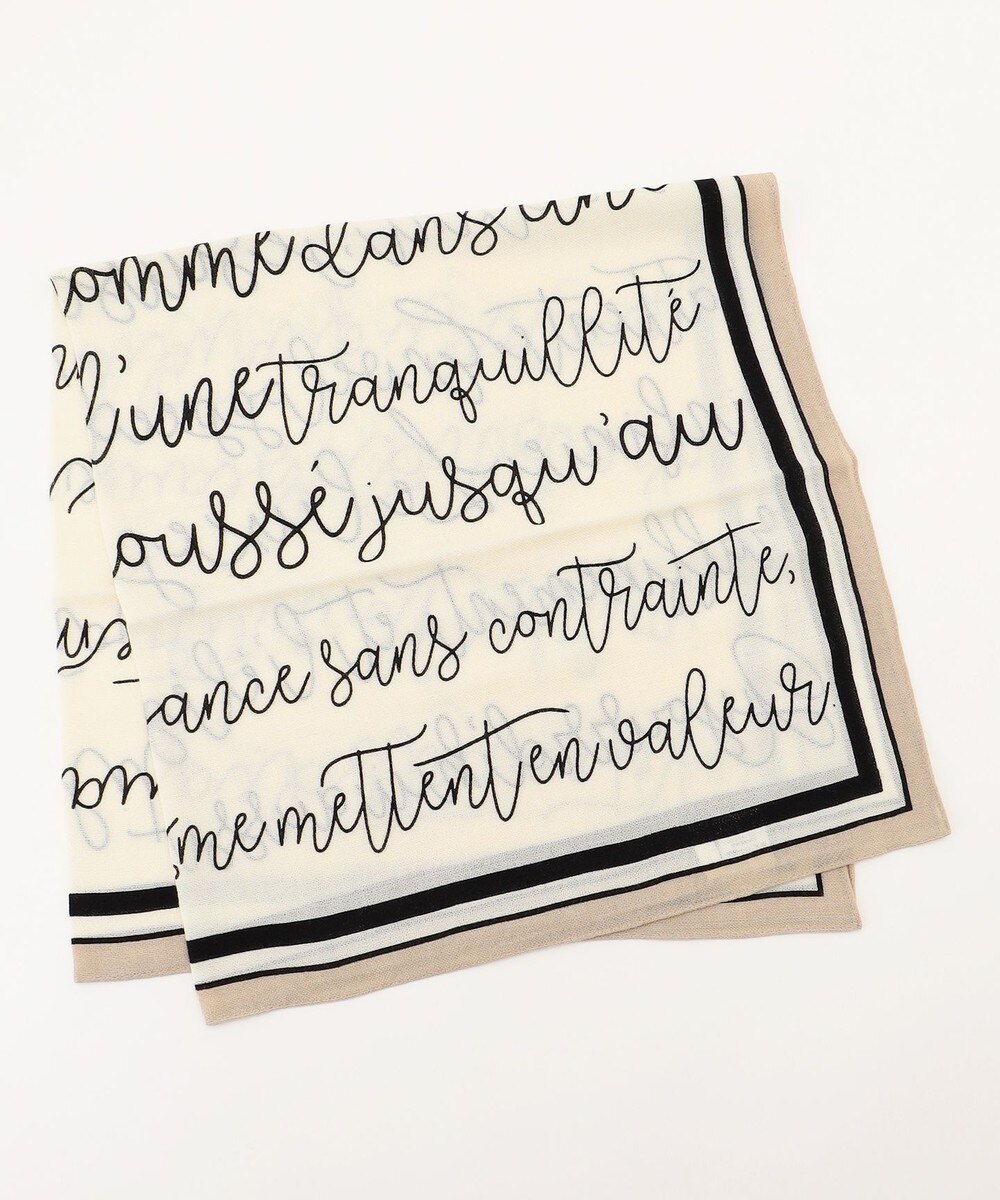 omme dans un
'une tranquillité
oussé jusqu'au
ance sans contrainte,
me mettent en valeur.